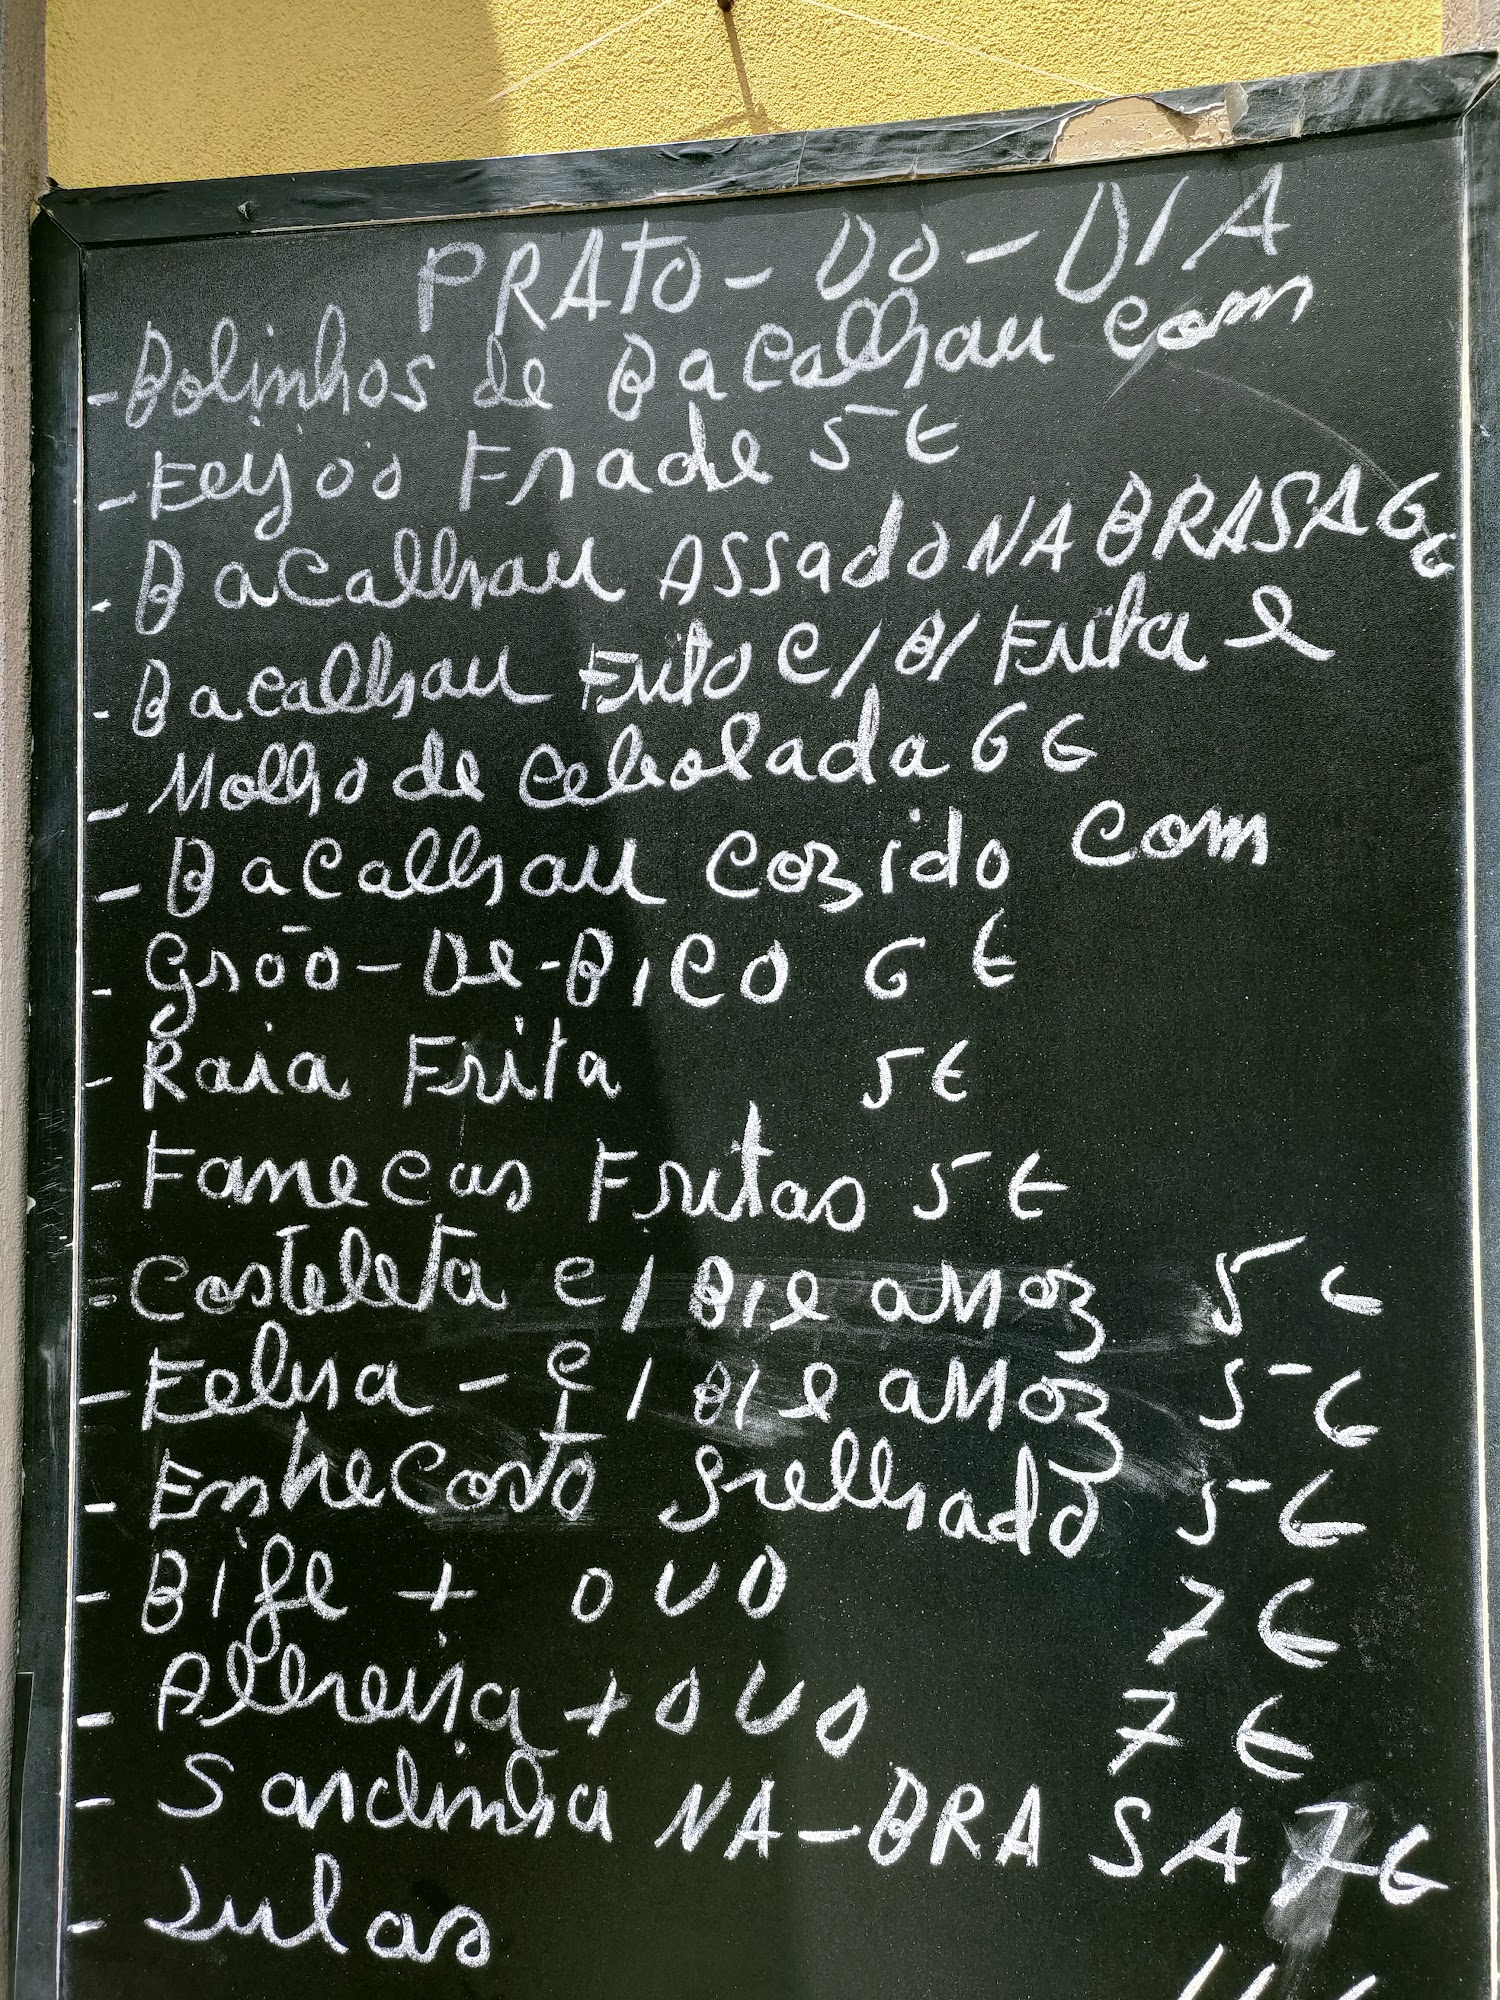 PRATO-DO-DIA
-Bolinhos de Bacalhau com
-Feijõo Frade 5€
- Bacalhau ASSado NA BRASA 6€
- Bacalhau Frito C/B/Frita e
- Molho de Cebolada 6€
- Bacalhau Cozido com
- Grõo-De-BICO 6 €
- Raia Frita 5€
- Fanecas Fritas 5€
- Costeleta C/B/e arroz 5€
- Febra - C/B/e arroz 5€
- Entrecosto grelhado 5€
- Bife + OVO 7€
- Alheira + OVO 7€
- Sardinha NA-BRASA 7€
- Lulas